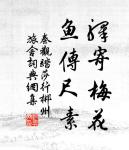 驛寄梅花
魚傳尺素
秦觀踏莎行郴州
旅舍詞典網集